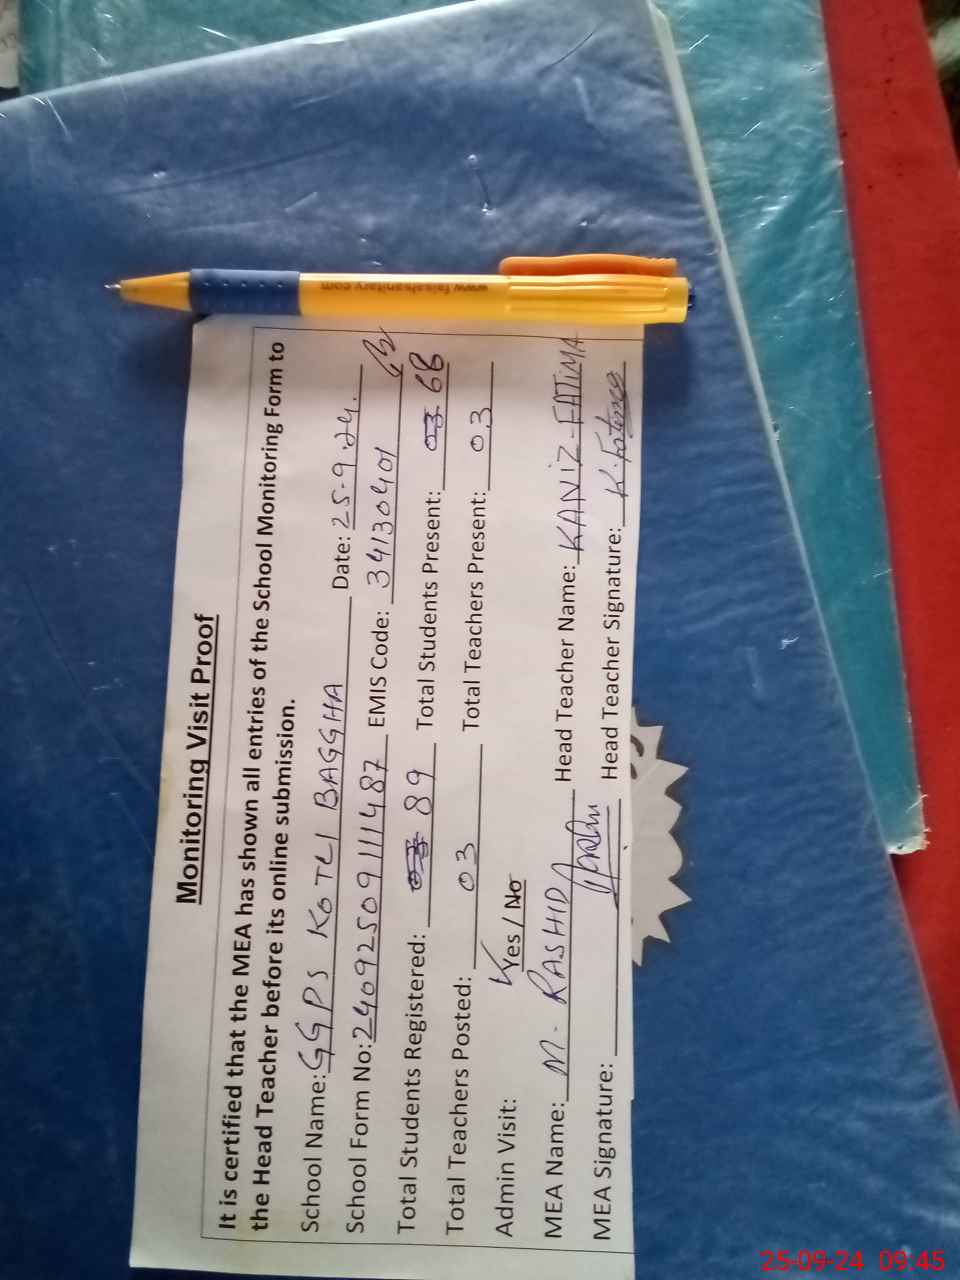 Monitoring Visit Proof
It is certified that the MEA has shown all entries of the School Monitoring Form to
the Head Teacher before its online submission.
School Name: GGPS KOTLI BAGGHA Date: 25-9-24.
School Form No: 240925091111487 EMIS Code: 34130401
Total Students Registered: 89 Total Students Present: 68
Total Teachers Posted: 03 Total Teachers Present: 03
Admin Visit: Yes / No
MEA Name: M. RASHID Head Teacher Name: KANIZ-FATIMA
MEA Signature: Head Teacher Signature: K. Fatima
www.faisalsanitary.com
25-09-24 09:45